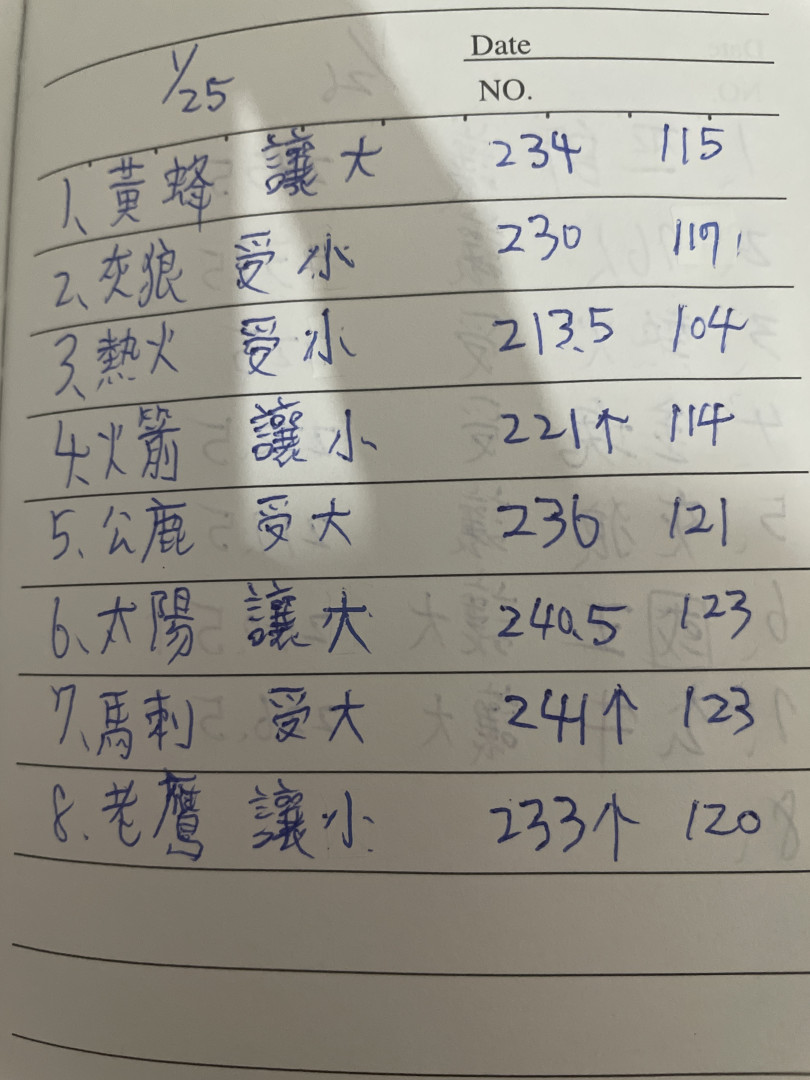 Date
1/25
NO.
1、黃蜂 讓 大 234 115
2、灰狼 受 小 230 117
3、熱火 受 小 213.5 104
4、火箭 讓 小 221↑ 114
5、公鹿 受 大 236 121
6、太陽 讓 大 240.5 123
7、馬刺 受 大 241↑ 123
8、老鷹 讓 小 233↑ 120